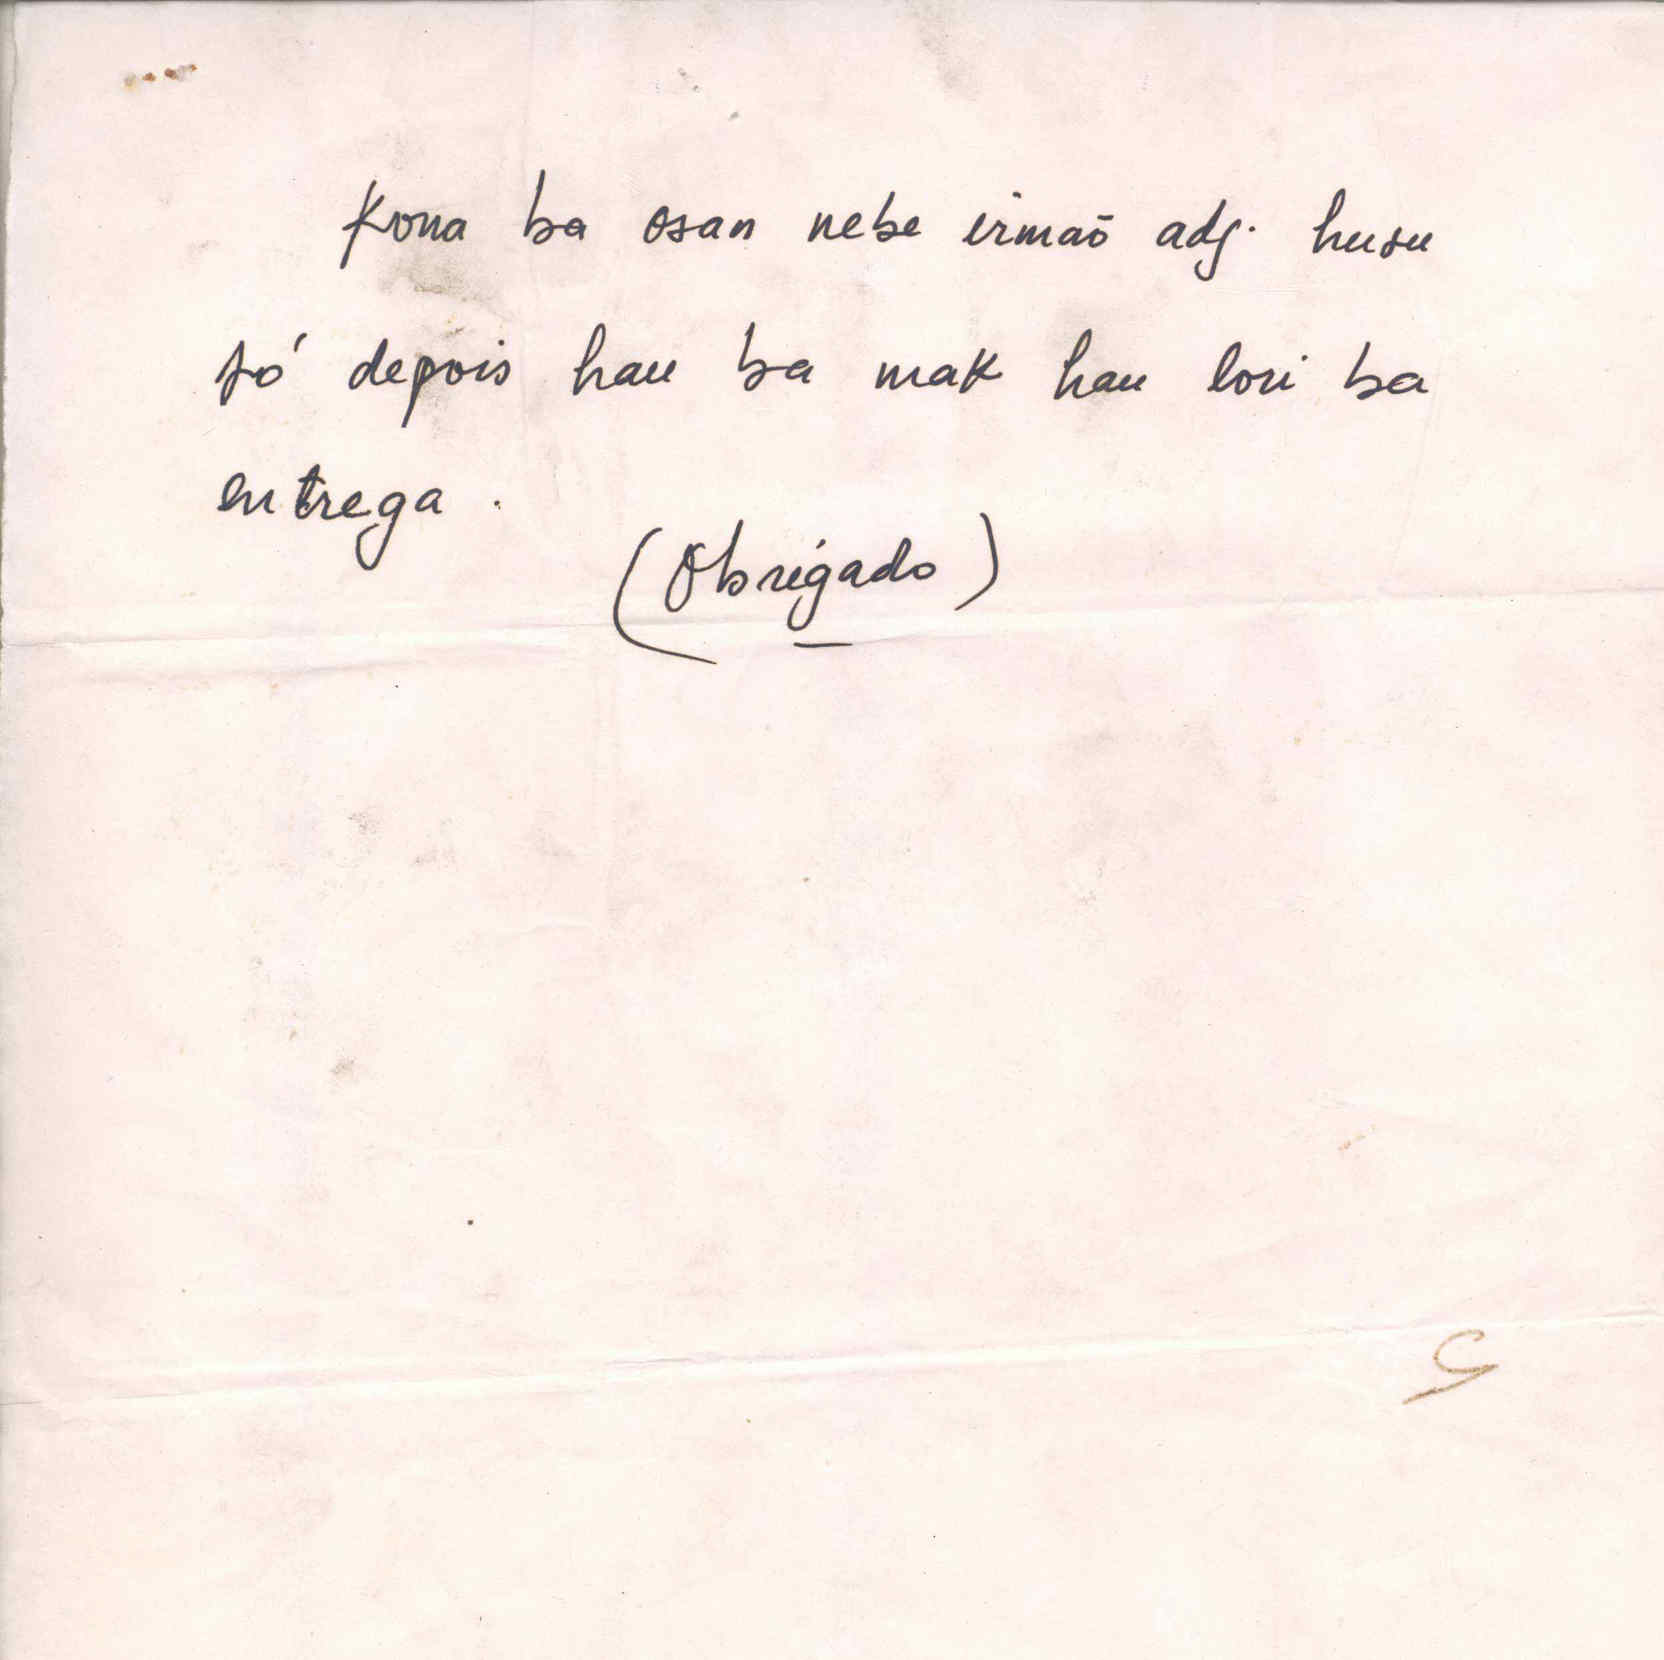 Kona ba osan nebe irmaõ adj. husu
só depois hau ba mak hau lori ba
entrega.
(Obrigado)